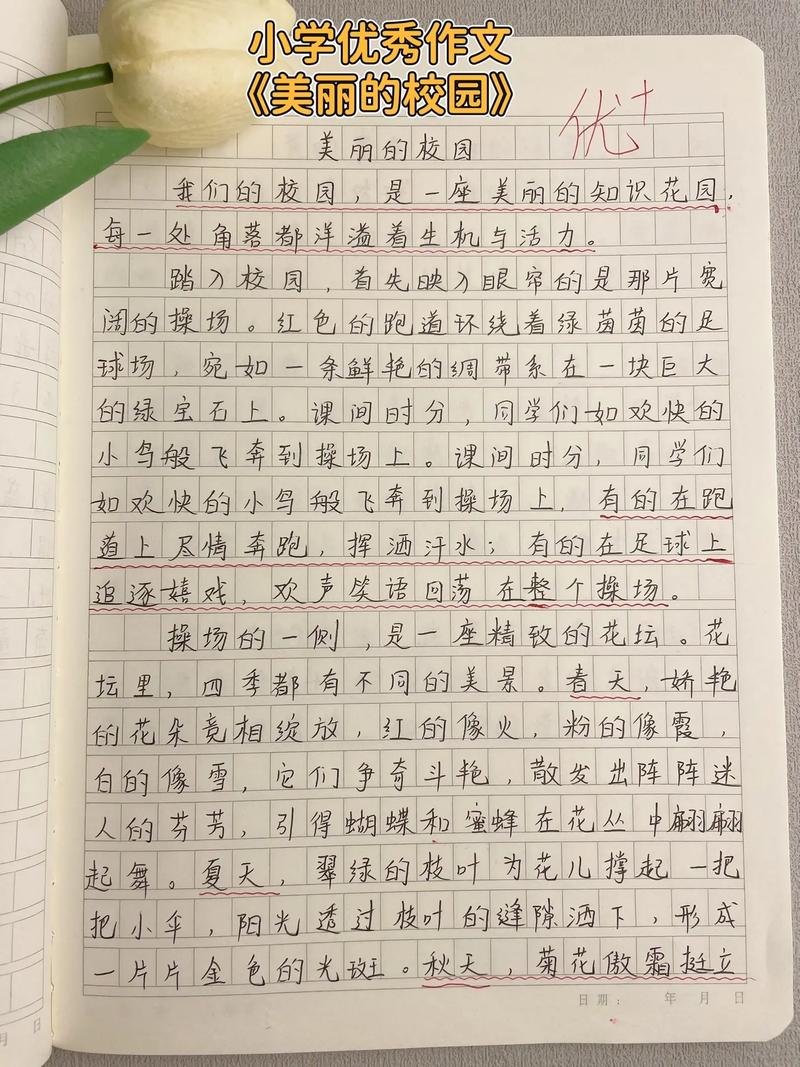 小学优秀作文
《美丽的校园》
优+
美丽的校园
我们的校园，是一座美丽的知识花园，
每一处角落都洋溢着生机与活力。
踏入校园，首先映入眼帘的是那片宽
阔的操场。红色的跑道环绕着绿茵茵的足
球场，宛如一条鲜艳的绸带系在一块巨大
的绿宝石上。课间时分，同学们如欢快的
小鸟般飞奔到操场上。课间时分，同学们
如欢快的小鸟般飞奔到操场上，有的在跑
道上尽情奔跑，挥洒汗水；有的在足球上
追逐嬉戏，欢声笑语回荡在整个操场。
操场的一侧，是一座精致的花坛。花
坛里，四季都有不同的美景。春天，娇艳
的花朵竞相绽放，红的像火，粉的像霞，
白的像雪，它们争奇斗艳，散发出阵阵迷
人的芬芳，引得蝴蝶和蜜蜂在花丛中翩翩
起舞。夏天，翠绿的枝叶为花儿撑起一把
把小伞，阳光透过枝叶的缝隙洒下，形成
一片片金色的光斑。秋天，菊花傲霜挺立
日期： 年 月 日
月 日